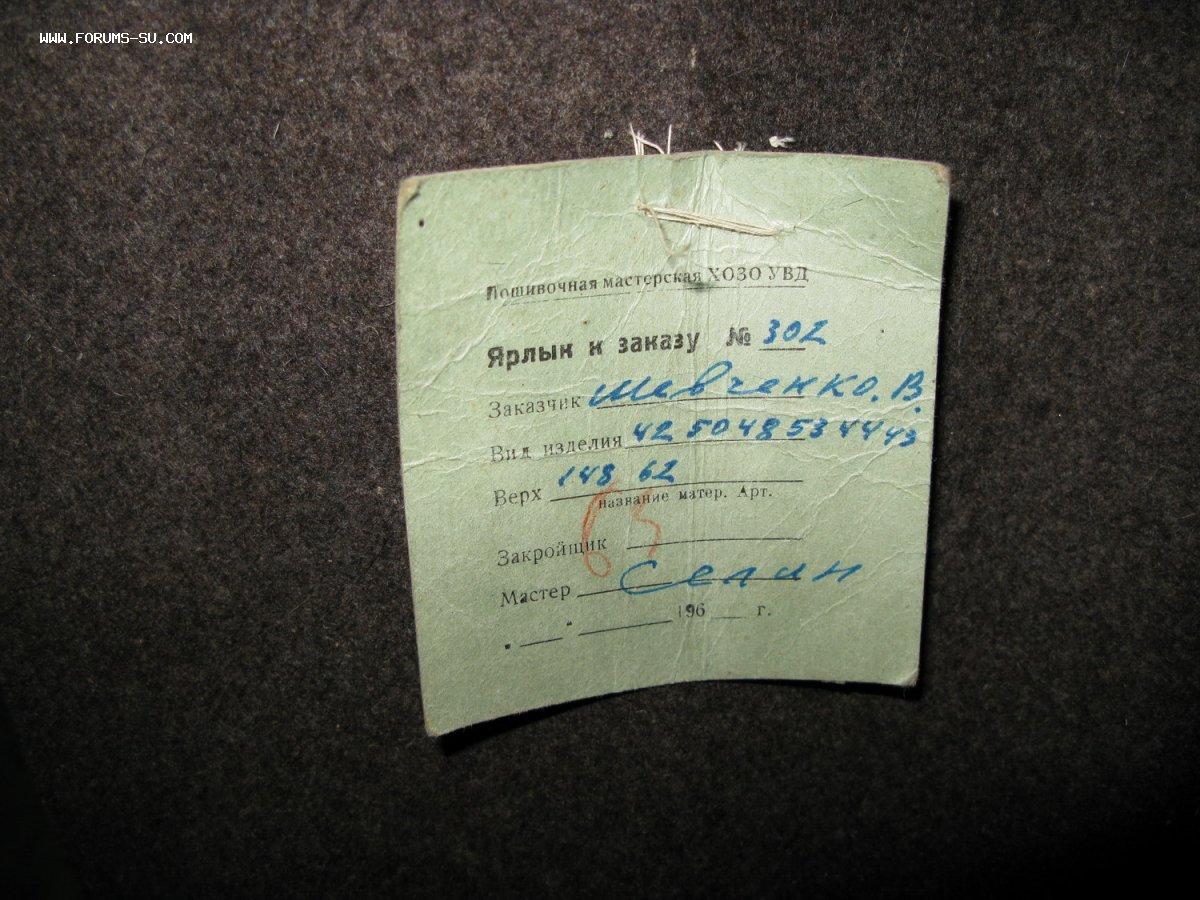 WWW.FORUMS-SU.COM
Пошивочная мастерская ХОЗО УВД
Ярлык к заказу № 302
Заказчик Шевченко. В.
Вид изделия 42 50 48 53 44 43
Верх 148 62
название матер. Арт.
Закройщик
Мастер Селин
" " 196 г.